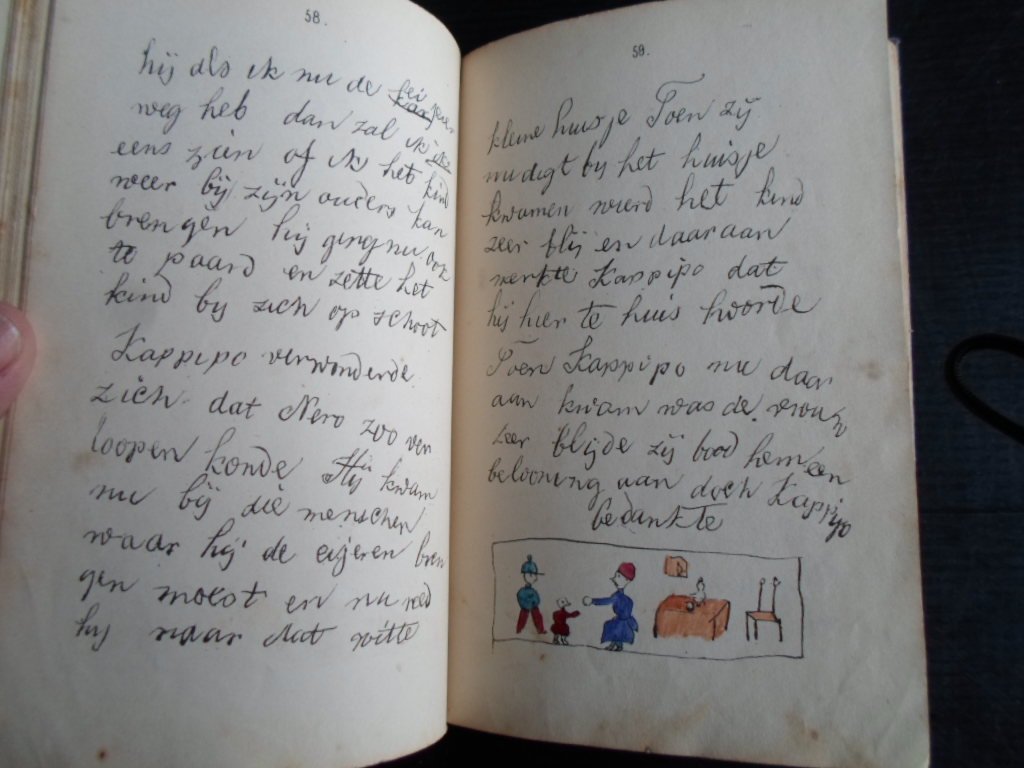 58.
hij als ik nu de eijeren
weg heb dan zal ik
eens zien of ik het kind
weer bij zijn ouders kan
brengen hij ging nu ook
te paard en zette het
kind bij zich op schoot
Kappipo verwonderde
zich dat Nero zoo ver
loopen konde Hij kwam
nu bij die menschen
waar hij de eijeren bren
gen moest en nu reed
hij naar dat witte
59.
kleine huisje Toen zij
nu digt bij het huisje
kwamen werd het kind
zeer blij en daaraan
merkte Kappipo dat
hij hier te huis hoorde
Toen Kappipo nu daar
aan kwam was de vrouw
zeer blijde zij bood hem een
belooning aan doch Kappipo
bedankte